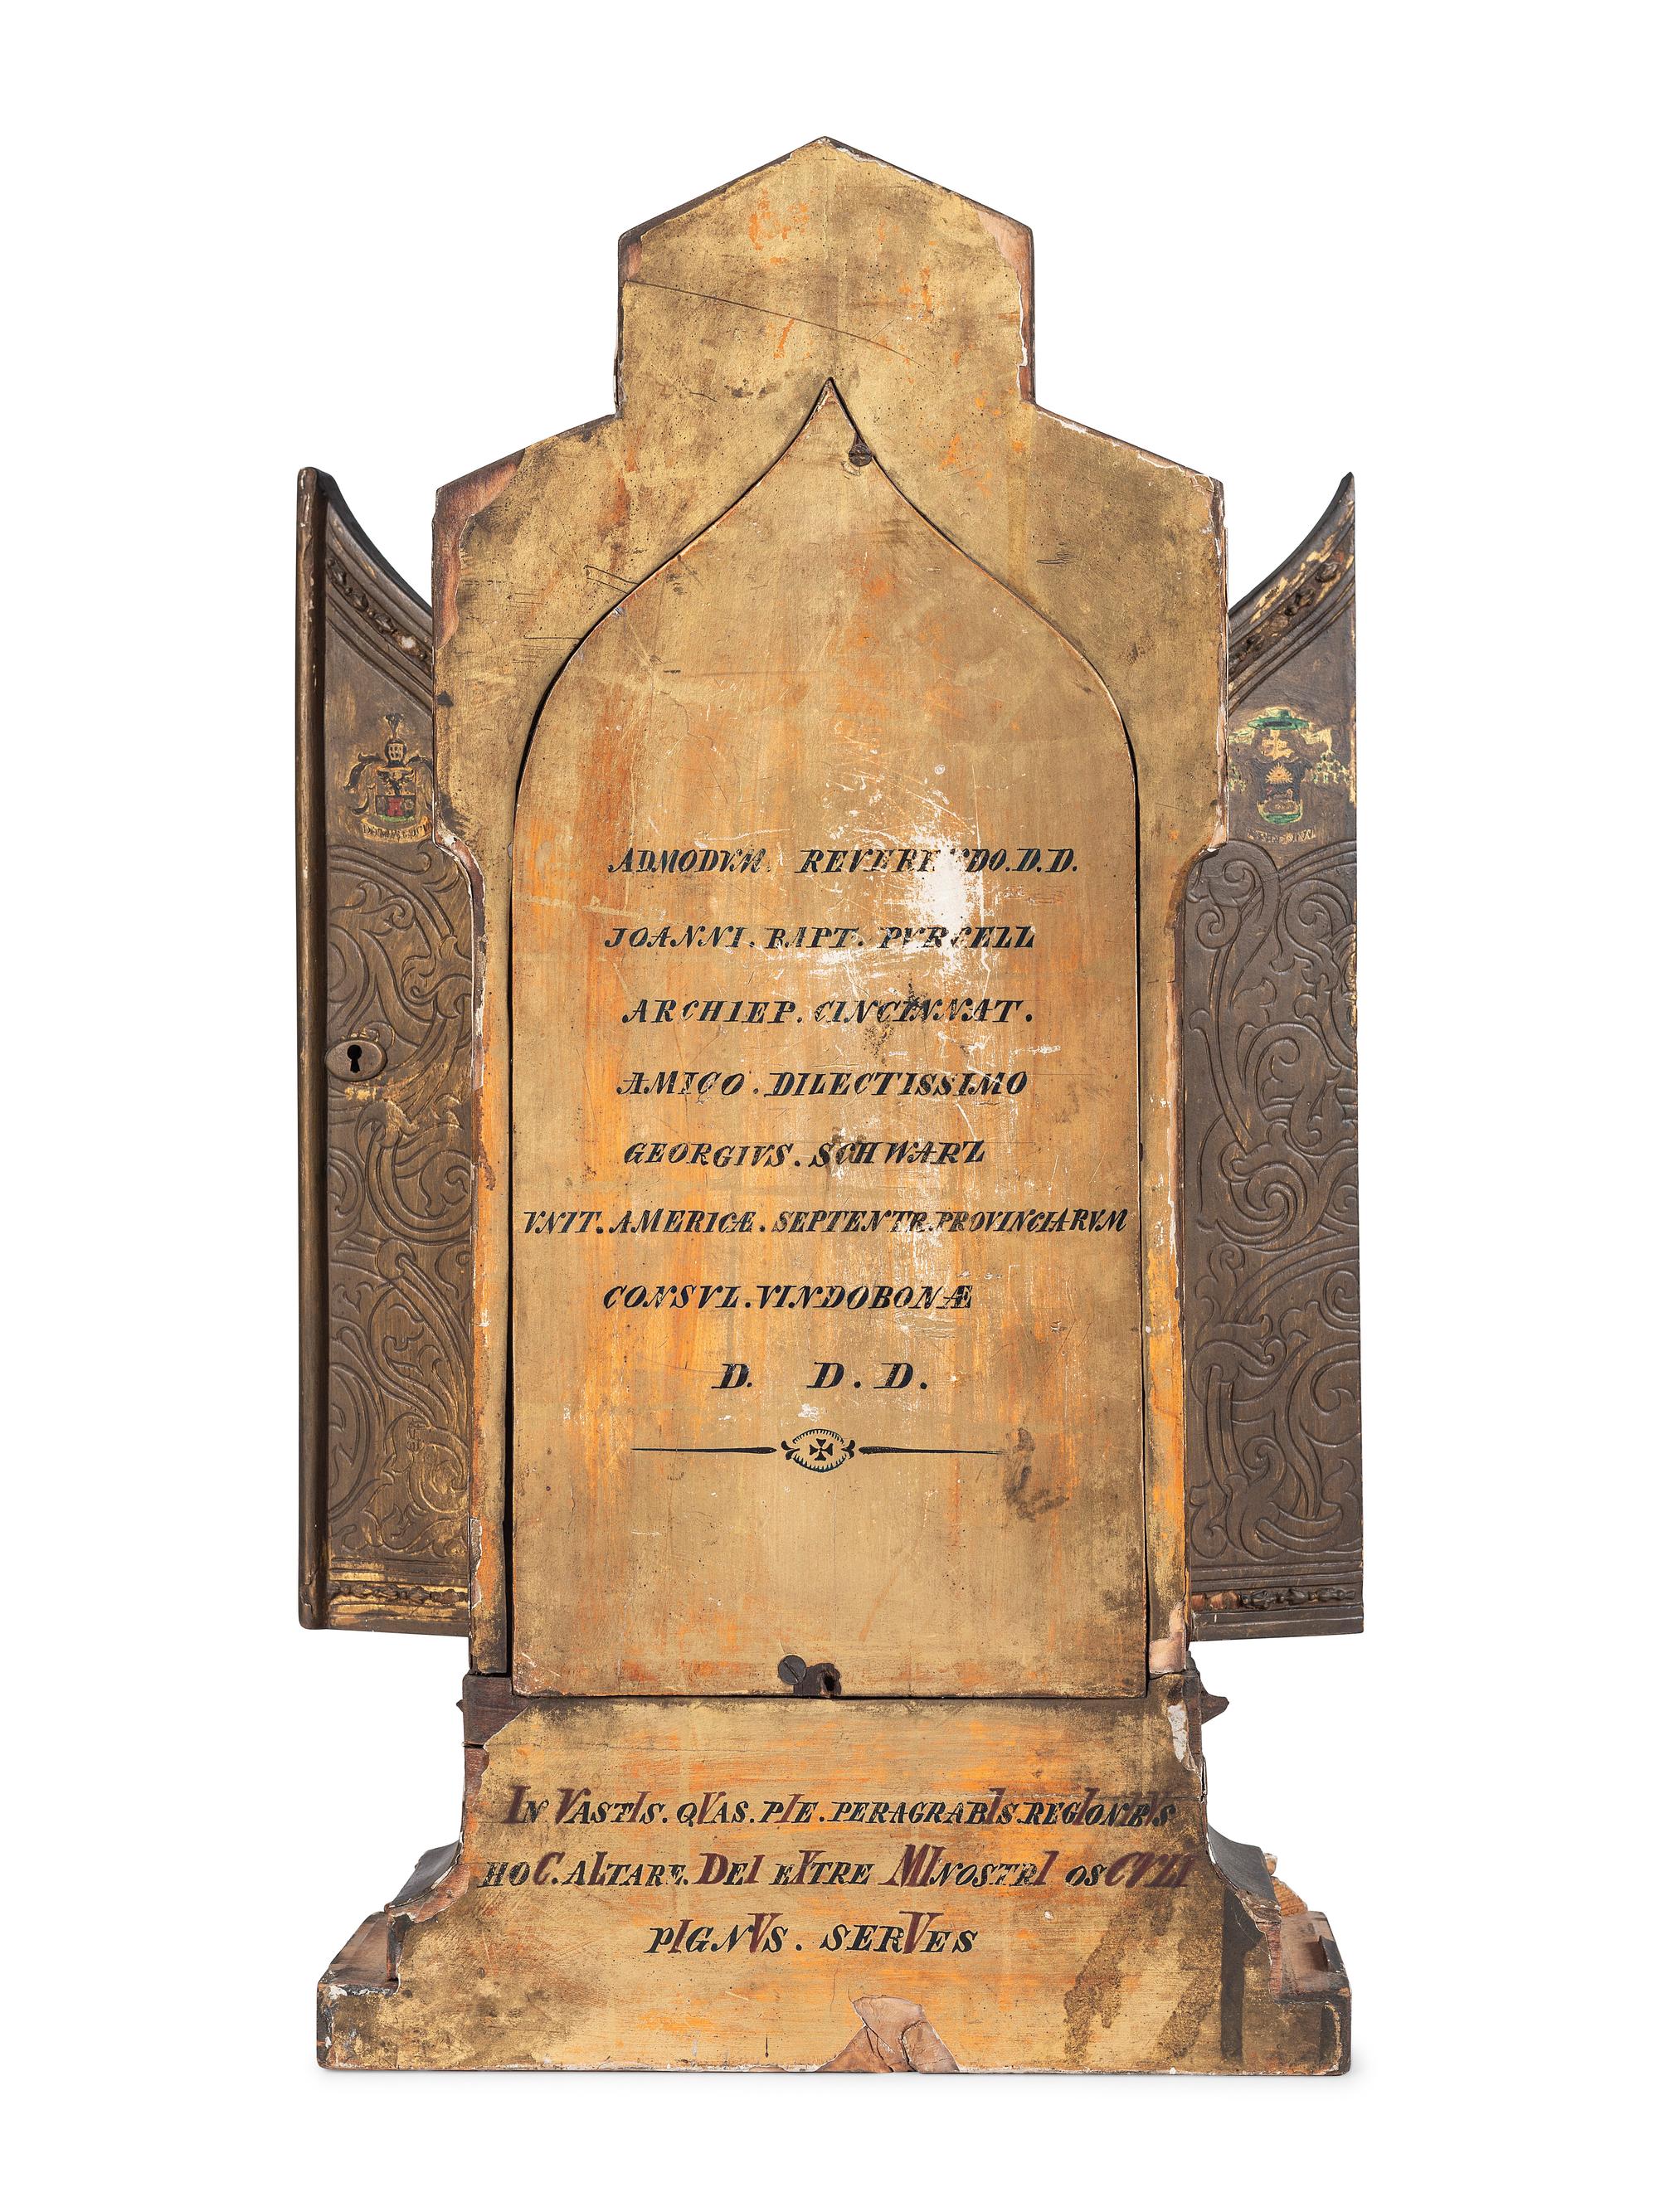 ADMODVM. REVERENDO.D.D.
JOANNI. BAPT. PVRCELL
ARCHIEP. CINCINNAT.
AMICO. DILECTISSIMO
GEORGIVS. SCHWARZ
VNIT. AMERICÆ. SEPTENTR. PROVINCIARVM
CONSVL. VINDOBONÆ
D. D. D.
IN VASTIS. QVAS. PIE. PERAGRABIS. REGIONIBVS
HOC. ALTARE. DEI EXTRE MINOSTRI OSCVLI
PIGNVS. SERVES